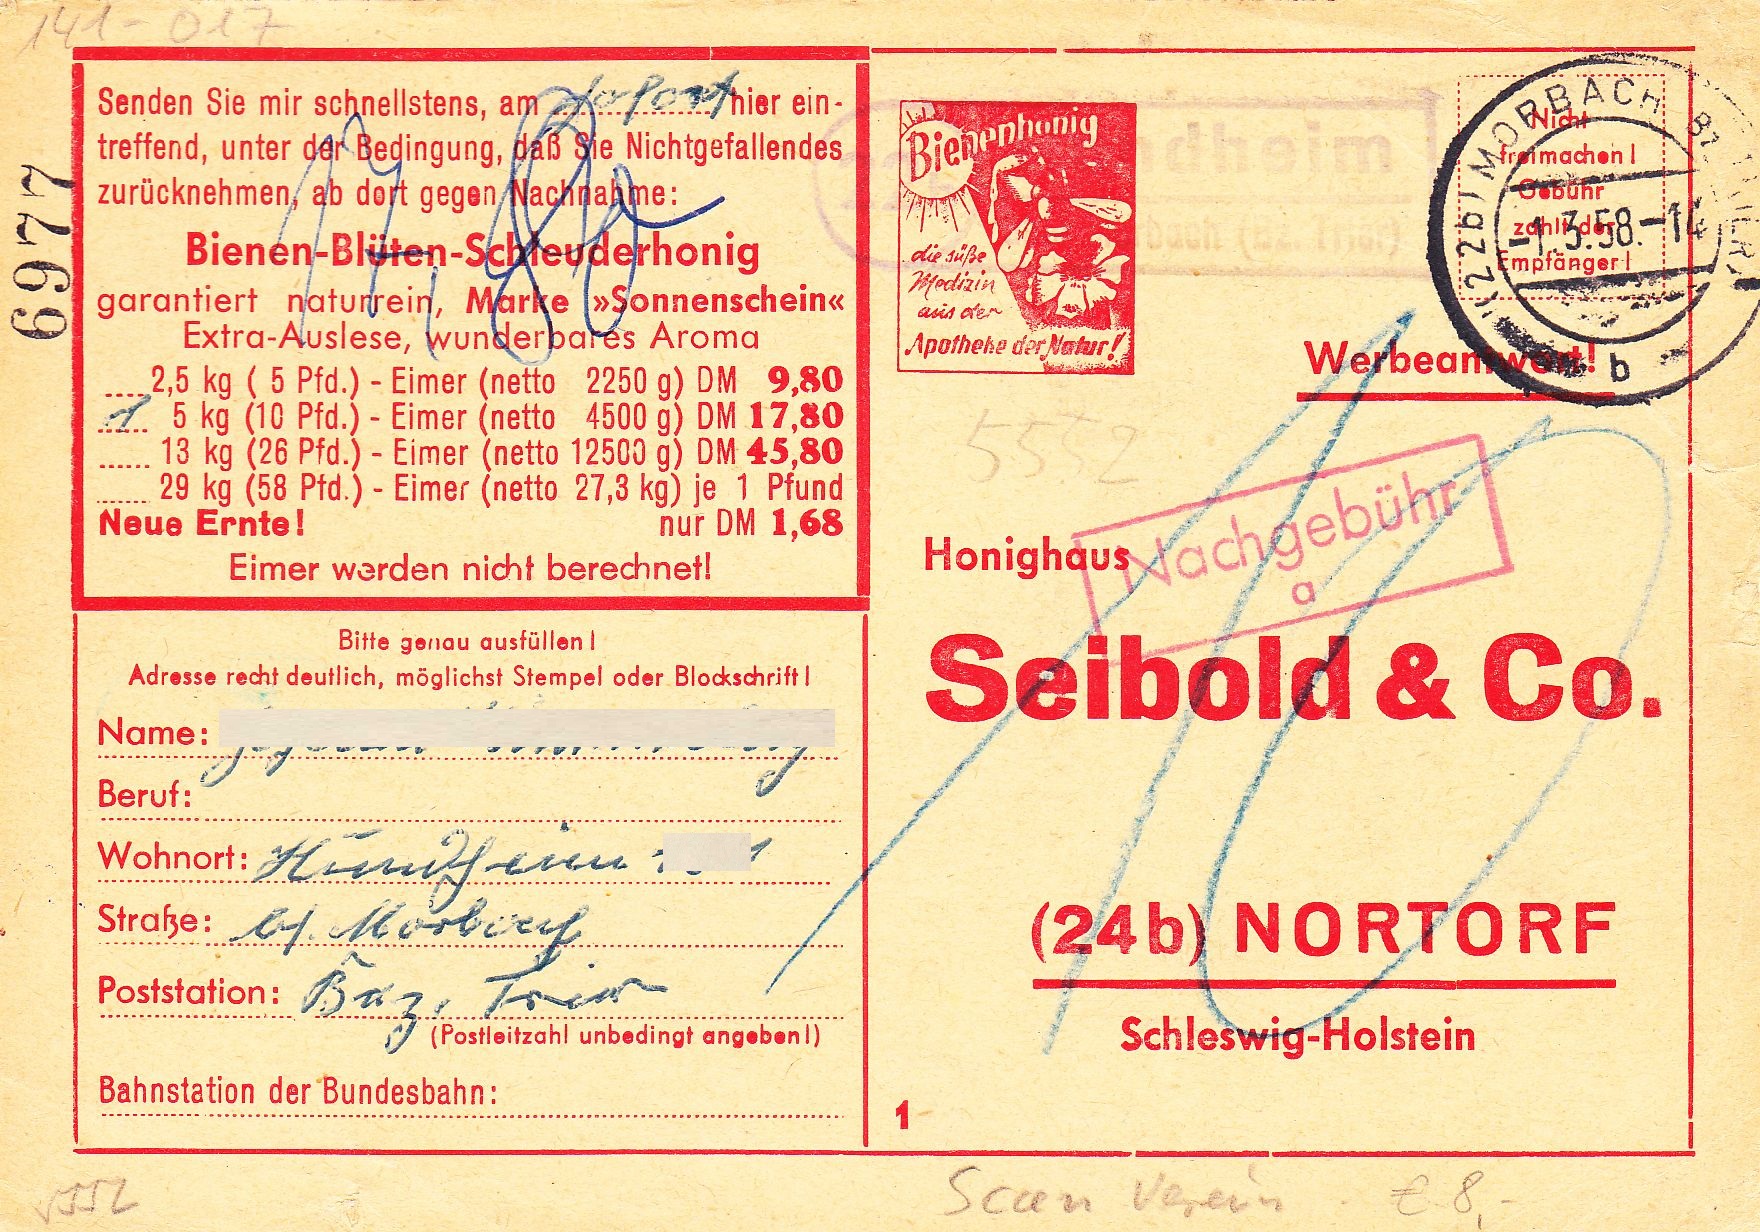 141-017
Senden Sie mir schnellstens, am sofort hier ein-
treffend, unter der Bedingung, daß Sie Nichtgefallendes
zurücknehmen, ab dort gegen Nachnahme:
17,80
Bienen-Blüten-Schleuderhonig
garantiert naturrein, Marke »Sonnenschein«
Extra-Auslese, wunderbares Aroma
2,5 kg ( 5 Pfd.) - Eimer (netto 2250 g) DM 9,80
1 5 kg (10 Pfd.) - Eimer (netto 4500 g) DM 17,80
13 kg (26 Pfd.) - Eimer (netto 12500 g) DM 45,80
29 kg (58 Pfd.) - Eimer (netto 27,3 kg) je 1 Pfund
Neue Ernte! nur DM 1,68
Eimer werden nicht berechnet!
6977
Bitte genau ausfüllen!
Adresse recht deutlich, möglichst Stempel oder Blockschrift!
Name:
Beruf:
Wohnort: Hundheim
Straße: bf. Morbach
Poststation: Bez. Trier
(Postleitzahl unbedingt angeben!)
Bahnstation der Bundesbahn:
Bienenhonig
die süße
Medizin
aus der
Apotheke der Natur!
Nicht
freimachen!
Gebühr
zahlt der
Empfänger!
(22b) MORBACH BZ. TRIER
-1.3.58.-14
b
Werbeantwort!
5552
Nachgebühr
a
10
Honighaus
Seibold & Co.
(24b) NORTORF
Schleswig-Holstein
1
5552
Scan Verein - € 8,-